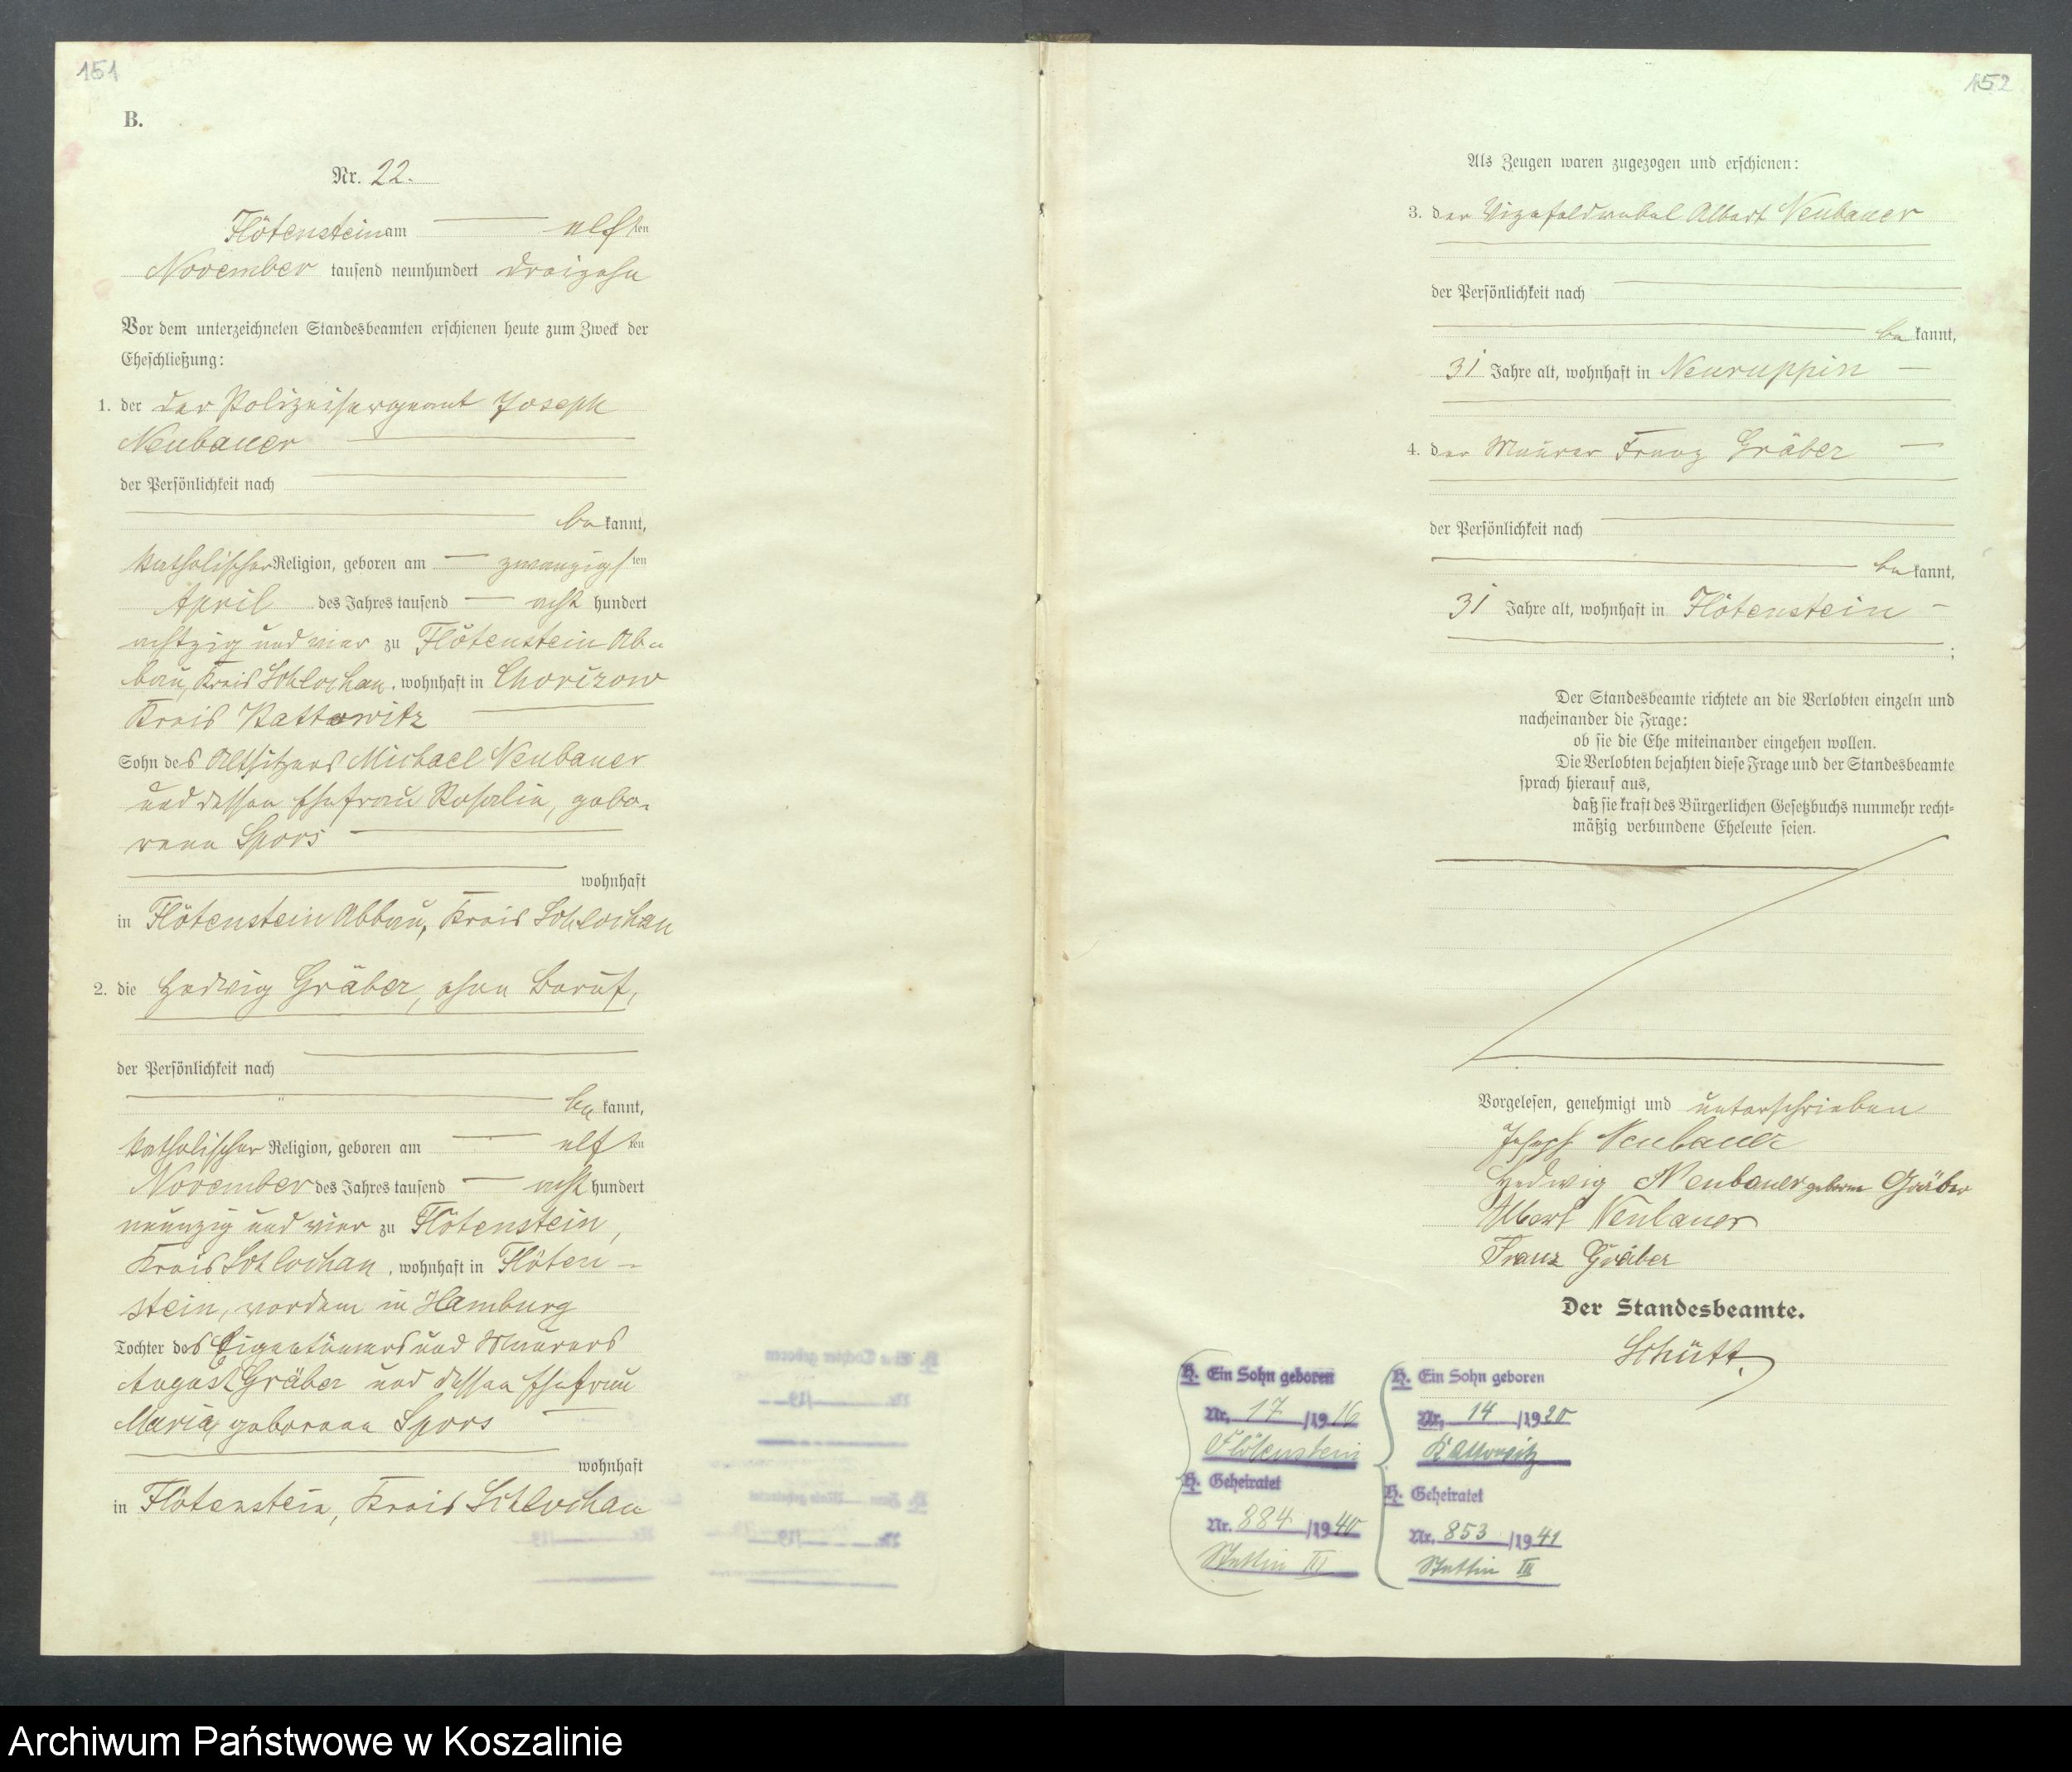 151
B.
Nr. 22.
Flötenstein am elften
November tausend neunhundert dreizehn
Vor dem unterzeichneten Standesbeamten erschienen heute zum Zweck der
Eheschließung:
1. der der Polizeisergeant Joseph
Neubauer
der Persönlichkeit nach
bekannt,
katholischer Religion, geboren am zwanzigsten
April des Jahres tausend acht hundert
achtzig und vier zu Flötenstein Ab-
bau, Kreis Schlochau, wohnhaft in Chorzow
Kreis Kattowitz
Sohn des Altsitzers Michael Neubauer
und dessen Ehefrau Rosalie, gebo-
rene Spors
wohnhaft
in Flötenstein Abbau, Kreis Schlochau
2. die Hedwig Gräber, ohne Beruf,
der Persönlichkeit nach
bekannt,
katholischer Religion, geboren am elften
November des Jahres tausend acht hundert
neunzig und vier zu Flötenstein,
Kreis Schlochau, wohnhaft in Flöten-
stein, vordem in Hamburg
Tochter des Eigentümers und Maurers
August Gräber und dessen Ehefrau
Maria, geborene Spors
wohnhaft
in Flötenstein, Kreis Schlochau
152
Als Zeugen waren zugezogen und erschienen:
3. der Vizefeldwebel Albert Neubauer
der Persönlichkeit nach
bekannt,
31 Jahre alt, wohnhaft in Neuruppin
4. der Maurer Franz Gräber
der Persönlichkeit nach
bekannt,
31 Jahre alt, wohnhaft in Flötenstein
;
Der Standesbeamte richtete an die Verlobten einzeln und
nacheinander die Frage:
ob sie die Ehe miteinander eingehen wollen.
Die Verlobten bejahten diese Frage und der Standesbeamte
sprach hierauf aus,
daß sie kraft des Bürgerlichen Gesetzbuchs nunmehr recht-
mäßig verbundene Eheleute seien.
Vorgelesen, genehmigt und unterschrieben
Joseph Neubauer
Hedwig Neubauer geborene Gräber
Albert Neubauer
Franz Gräber
Der Standesbeamte.
Schütt.
H. Ein Sohn geboren
Nr. 17 /1916
Flötenstein
H. Geheiratet
Nr. 884 /1940
Stettin III
H. Ein Sohn geboren
Nr. 14 /1920
Kattowitz
H. Geheiratet
Nr. 853 /1941
Stettin III
Archiwum Państwowe w Koszalinie